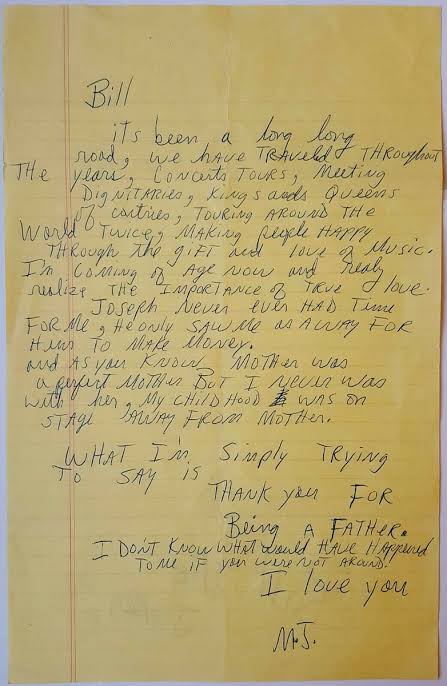 Bill
its been a long long
road, we have TRAveled THROughout
THe years, Concerts TOURS, Meeting
Dignitaries, Kings ands Queens
of contries, TOURING AROUND THe
World Twice, MAking people HAppy
THROugh the giFT and love of Music.
I'm Coming of Age now and realy
realize THe IMpORTANce of TRue love.
Joseph Never ever HAD Time
FOR Me, He only SAW Me as A WAY FOR
HiM To MAKe Money.
and AS you Know MoTHer was
a perfect MoTHer BuT I Never was
with her, My CHildHood was on
STAGe AWAY FROM MoTHer.
WHAT I'm Simply TRying
To SAy is
THANK you FOR
Being A FATHeR.
I DON'T KNow WHAT would HAVe HAppened
To Me iF you weRe NoT AROUND.
I love you
M.J.